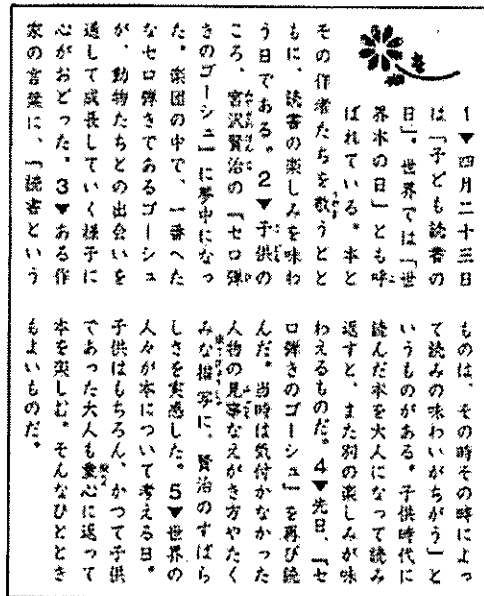 1▼四月二十三日
は「子ども読書の
日」。世界では「世
界本の日」とも呼
ばれている。本と
その作者たちを敬うとと
もに、読書の楽しみを味わ
う日である。2▼子供の
ころ、宮沢賢治の『セロ弾
きのゴーシュ』に夢中になっ
た。楽団の中で、一番へた
なセロ弾きであるゴーシュ
が、動物たちとの出会いを
通して成長していく様子に
心がおどった。3▼ある作
家の言葉に、「読書という
ものは、その時その時によっ
て読みの味わいがちがう」と
いうものがある。子供時代に
読んだ本を大人になって読み
返すと、また別の楽しみが味
わえるものだ。4▼先日、『セ
ロ弾きのゴーシュ』を再び読
んだ。当時は気付かなかった
人物の見事なえがき方やたく
みな描写に、賢治のすばら
しさを実感した。5▼世界の
人々が本について考える日。
子供はもちろん、かつて子供
であった大人も童心に返って
本を楽しむ。そんなひととき
もよいものだ。